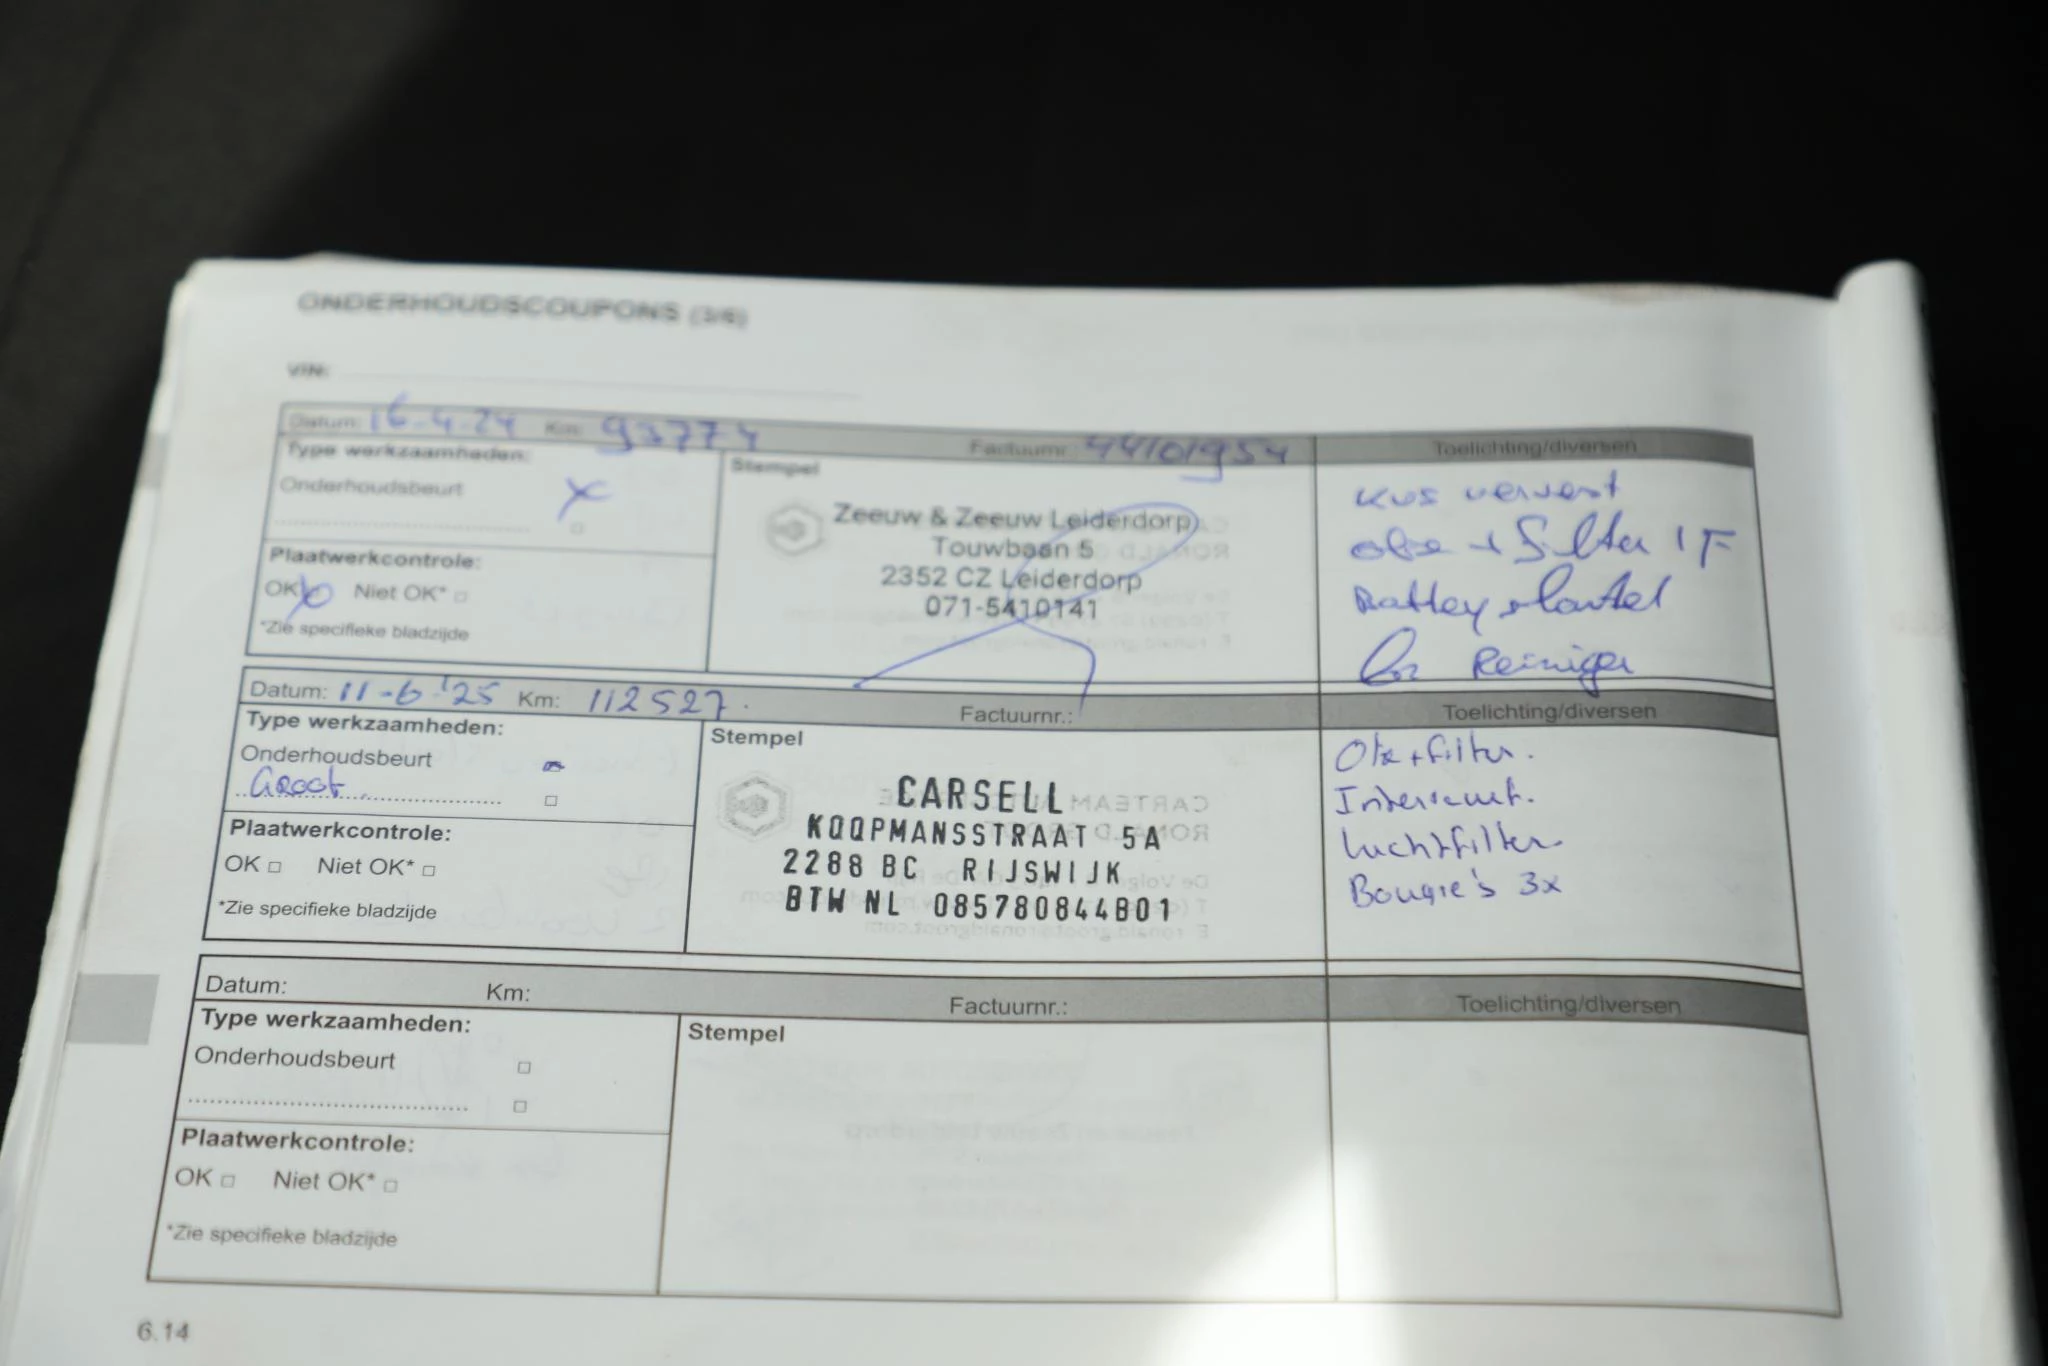 ONDERHOUDSCOUPONS (3/6)
VIN:
Datum: 16-4-24 Km: 93774 Factuurnr.: 44101954 Toelichting/diversen
Type werkzaamheden:
Onderhoudsbeurt x
Plaatwerkcontrole:
OK x Niet OK*
*Zie specifieke bladzijde
Stempel
Zeeuw & Zeeuw Leiderdorp
Touwbaan 5
2352 CZ Leiderdorp
071-5410141
olie + filter IF
Battery sleutel
Reiniger
Datum: 11-6-'25 Km: 112527. Factuurnr.: Toelichting/diversen
Type werkzaamheden:
Onderhoudsbeurt
Groot
Plaatwerkcontrole:
OK Niet OK*
*Zie specifieke bladzijde
Stempel
CARSELL
KOOPMANSSTRAAT 5A
2288 BC RIJSWIJK
BTW NL 085780844B01
Olie + filter.
Luchtfilter
Bougie's 3x
Datum: Km: Factuurnr.: Toelichting/diversen
Type werkzaamheden:
Onderhoudsbeurt
Plaatwerkcontrole:
OK Niet OK*
*Zie specifieke bladzijde
Stempel
6.14